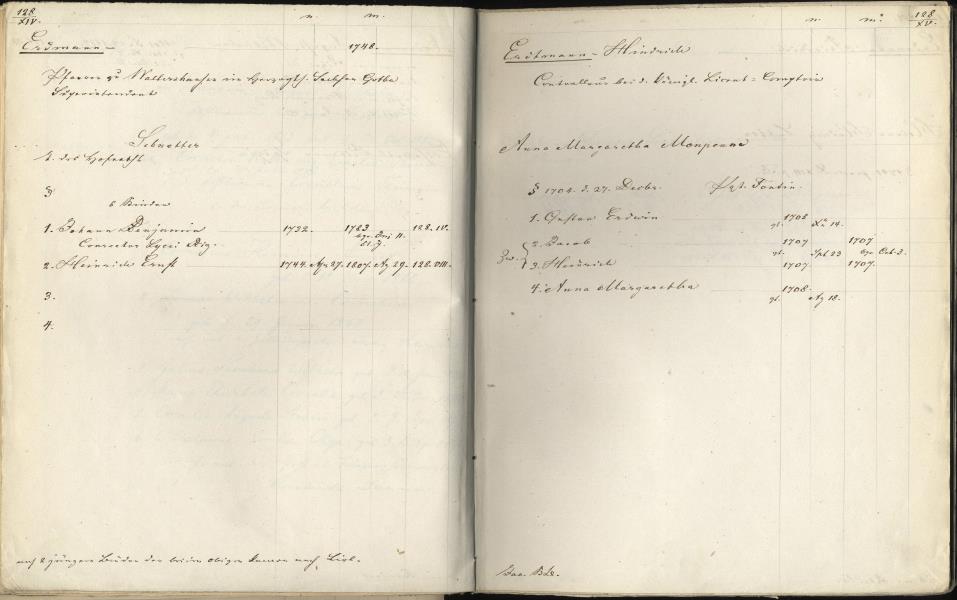 128
XIV.
n. m.
Erdmann — 1748.
Pfarrer zu Waltershausen im Herzogth. Sachsen Gotha
Superintendent
Schnetter
t. des Hofraths
§
6 Kinder
1. Johann Benjamin 1732. 1783 128. IV.
Conrector Lycei Rig.
2. Heinrich Ernst 1744. Apr 27. 1807. Ag 29. 128. VIII.
3.
4.
auch 2 jüngere Brüder der beiden obigen kamen nach Livl.
128
XV.
n. m.
Erdtmann — Hindrich
Controlleur bei d. Königl. Licent = Comptoir
Anna Margaretha Monpenne
§ 1704. d. 27. Decbr.
1. Gustav Erdwin 1706
gt. 14.
Zw. 2. Jacob 1707 1707
gt. Spt 23 Oct. 3.
3. Heinrich 1707 1707.
4. Anna Margaretha 1708.
gt. Ag 18.